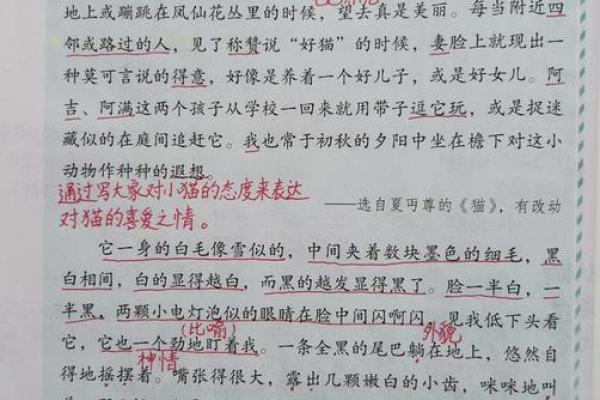 地上或蹦跳在凤仙花丛里的时候，望去真是美丽。每当附近四
邻或路过的人，见了称赞说“好猫”的时候，妻脸上就现出一
种莫可言说的得意，好像是养着一个好儿子，或是好女儿。阿
吉、阿满这两个孩子从学校一回来就用带子逗它玩，或是捉迷
藏似的在庭间追赶它。我也常于初秋的夕阳中坐在檐下对这小
动物作种种的遐想。
通过写大家对小猫的态度来表达
——选自夏丏尊的《猫》，有改动
对猫的喜爱之情。
它一身的白毛像雪似的，中间夹着数块墨色的细毛，黑
白相间，白的显得越白，而黑的越发显得黑了。脸一半白，一
半黑。两颗小电灯泡似的眼睛在脸中间闪啊闪，见我低下头看
(比喻)
外貌
它，它也一个劲地盯着我。一条全黑的尾巴躺在地上，悠然自
神情
得地摇摆着。嘴张得很大，露出几颗嫩白的小齿，咪咪地叫